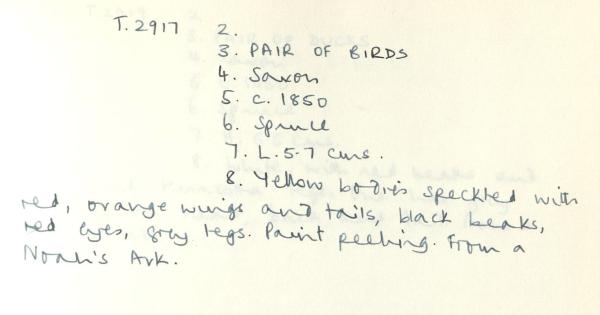 T.2917 2.
3. PAIR OF BIRDS
4. Saxon
5. c. 1850
6. Spruce
7. L.5-7 cms.
8. Yellow bodies speckled with
red, orange wings and tails, black beaks,
red eyes, grey legs. Paint peeling. From a
Noah's Ark.